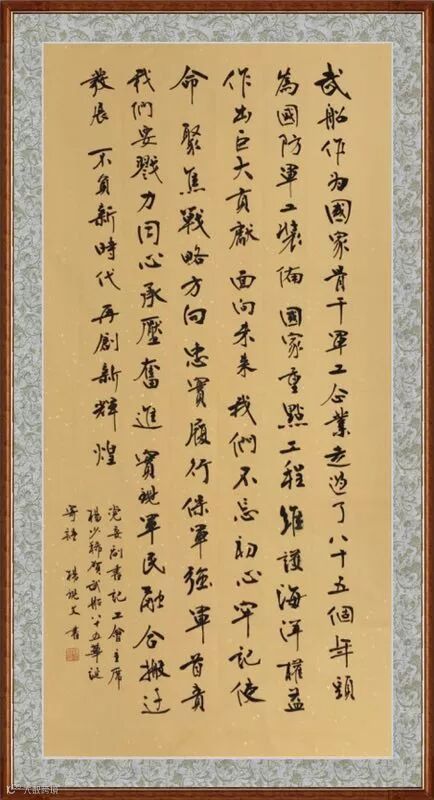 武船作为國家骨干軍工企業走過了八十五個年頭
為國防軍工装備國家重點工程維護海洋權益
作出巨大貢獻面向未来我們不忘初心牢記使
命聚焦戰略方向忠實履行保軍強軍首責
我們要戮力同心承壓奮進實現軍民融合搬迁
發展不負新時代再創新輝煌
党委副書記工會主席
楊少稀賀武船八十五華誕
寄語 楊悦文書
大数跨境